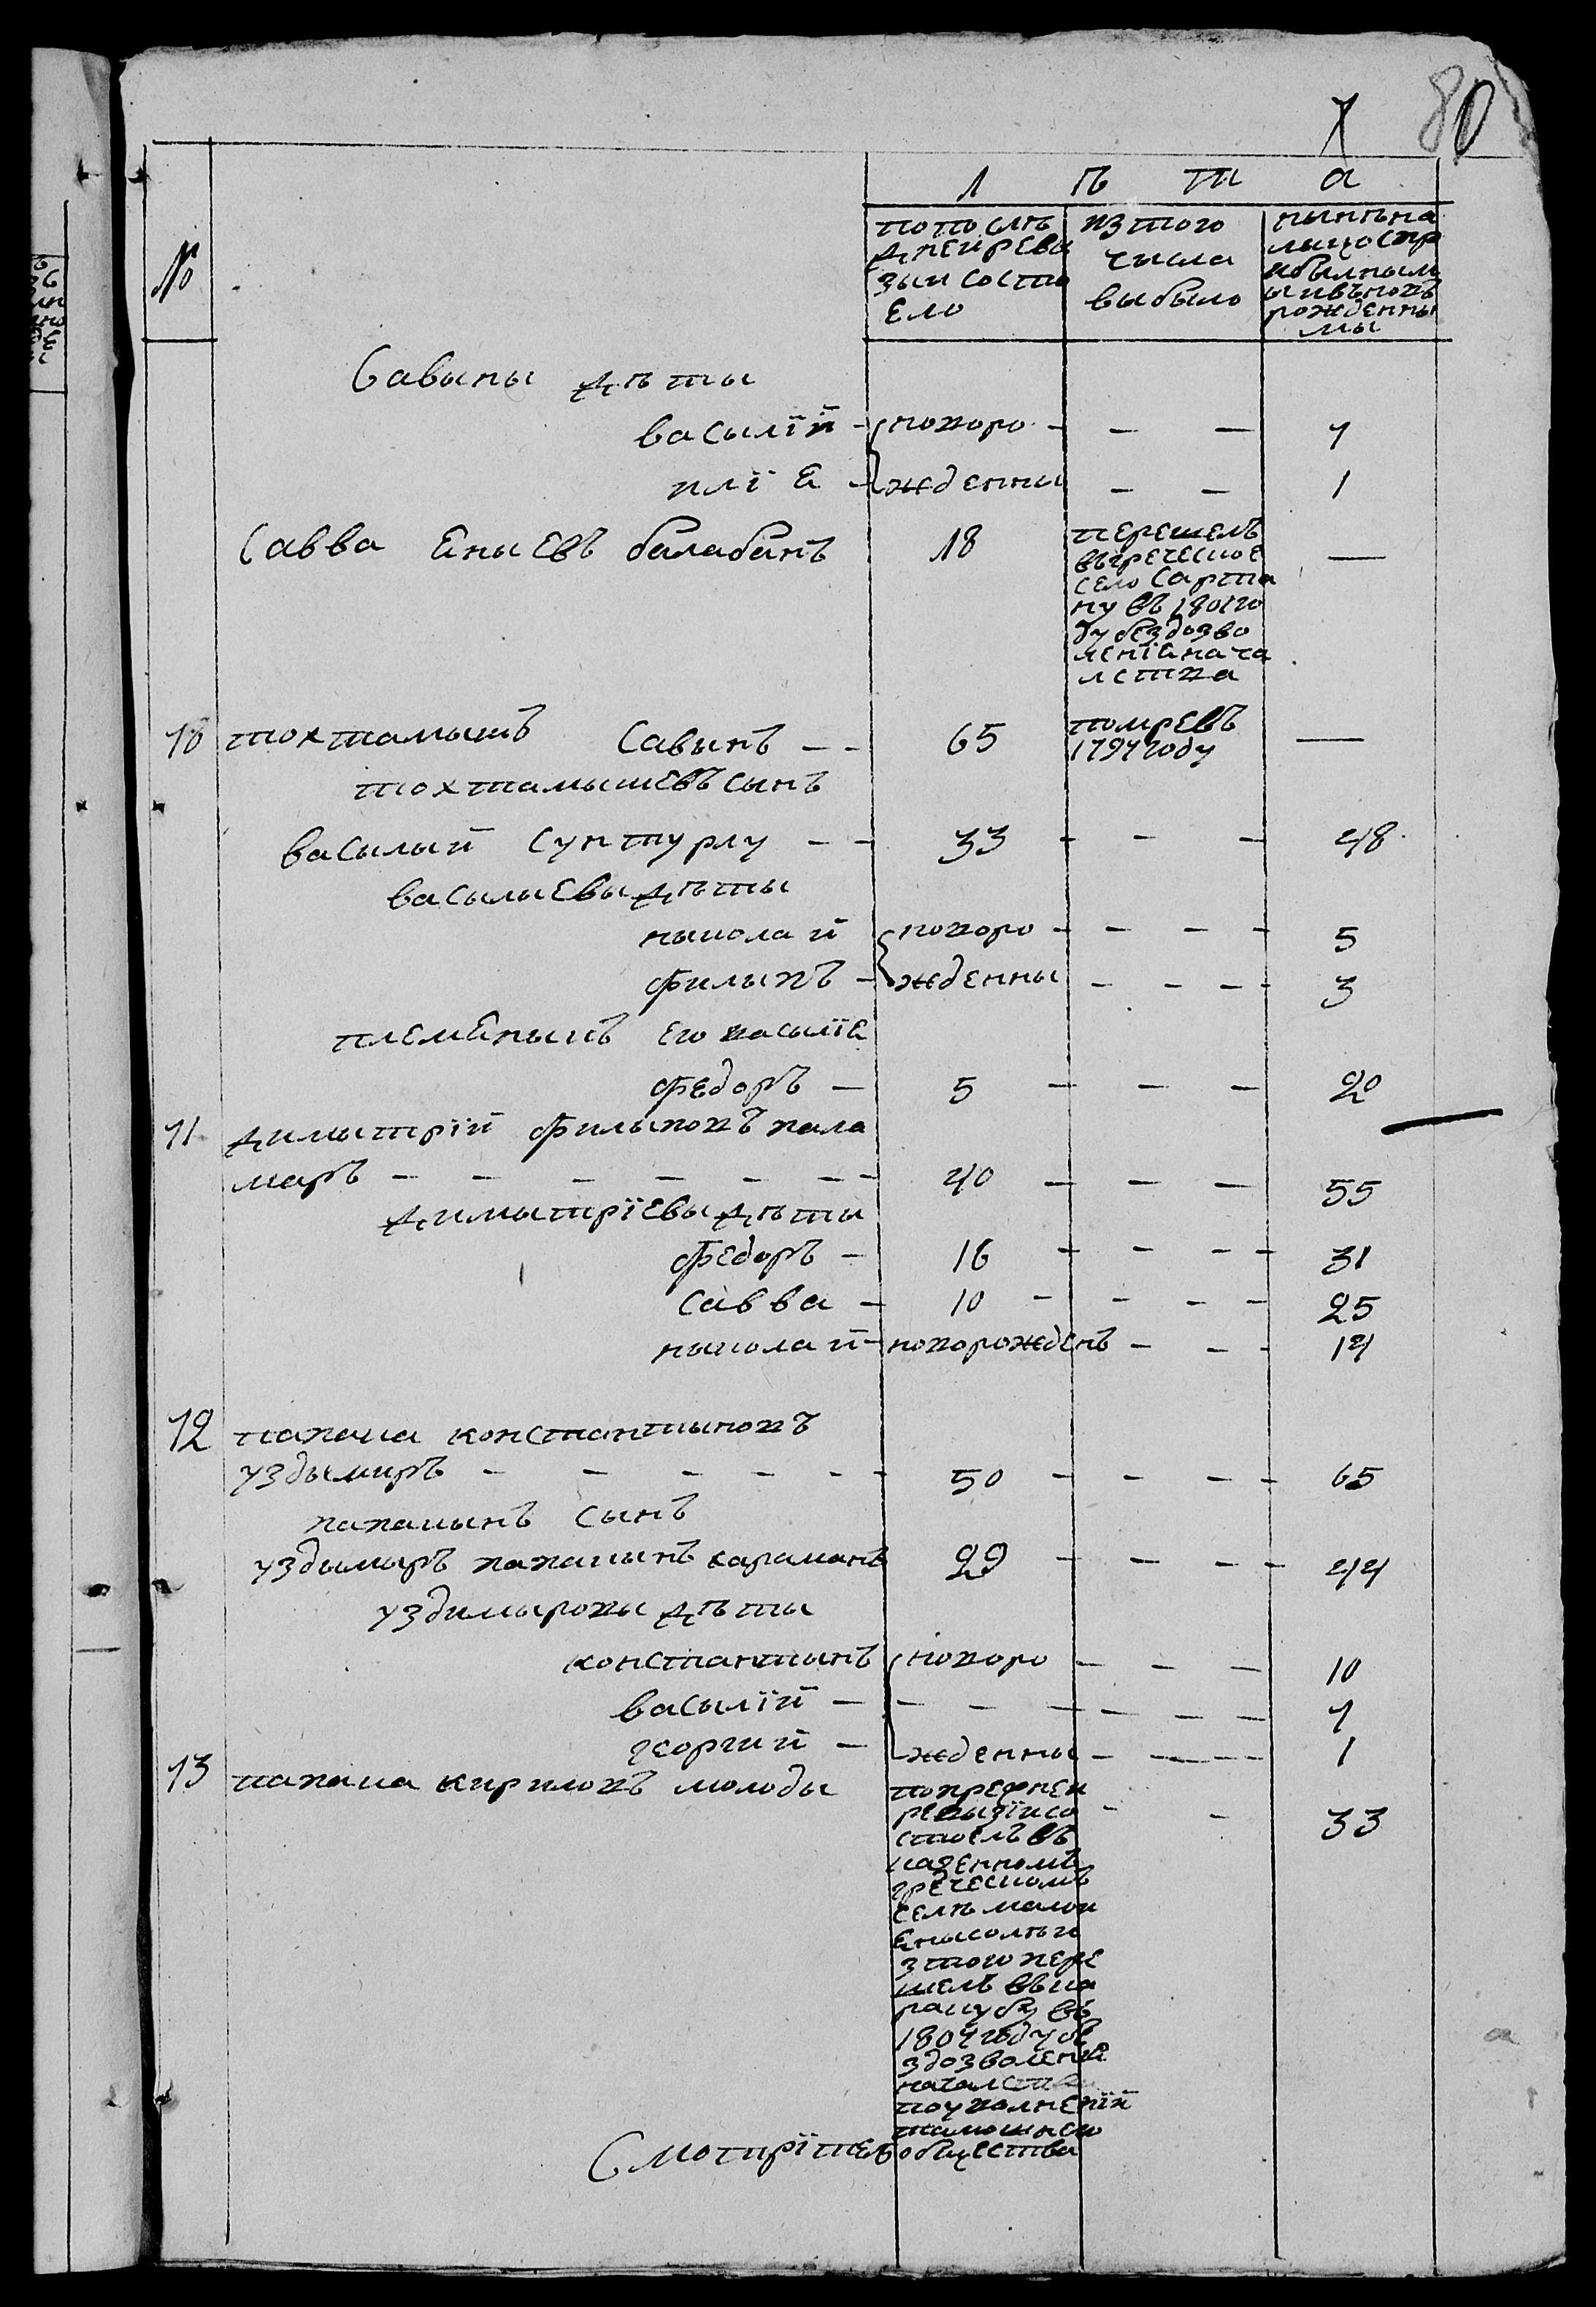 80
Л ѣ т а
№
попослѣ
днейреви
зыи состо
ело
изтого
числа
выбыло
нынѣна
лицоспр
ибылным
ыивъновъ
рожденны
мы
Савыны дѣты
василїй - новоро - - - 7
илїя - жденны - - 1
Савва яныевъ балабанъ 18 —
перешелъ
вьгреческое
село Сарта
ну въ 1801го
ду бездозво
ленїянача
лства
10 тохтамышъ Савынъ - - 65 —
помревъ
1797году
тохтамышевъ сынъ
васылый сунтурлу - - 33 - - - 48
васылыевы дѣты
ныколай новоро - - - - 5
филыпъ - жденны - - - - 3
племяныкъ его васылїя
федоръ - 5 - - - 20
11 димытрїй филыповъ пала
маръ - - - - - - - 40 - - - 55
димытрїевы дѣты
федоръ - 16 - - - - 31
савва - 10 - - - - 25
ныколай - новорожденъ - - - 14
12 папаша константыновъ
уздымиръ - - - - - - 50 - - - - 65
папашынъ сынъ
уздымыръ папашынъ караманъ 29 - - - - 44
уздимыровы дѣты
константынъ новоро - - - 10
васылїй - - - - - - - 7
георгий - жденны - - - - - 1
13 папаша кириловъ молоды - - 33
попрежнеи
ревызїисо
стоелъ въ
казенномъ
греческомъ
селѣ малои
янысолѣи
зтого пере
шелъ въка
ракубу въ
1804году бе
здозволенія
началства
поуволненїй
тамошнего
общества
Смотрїтель